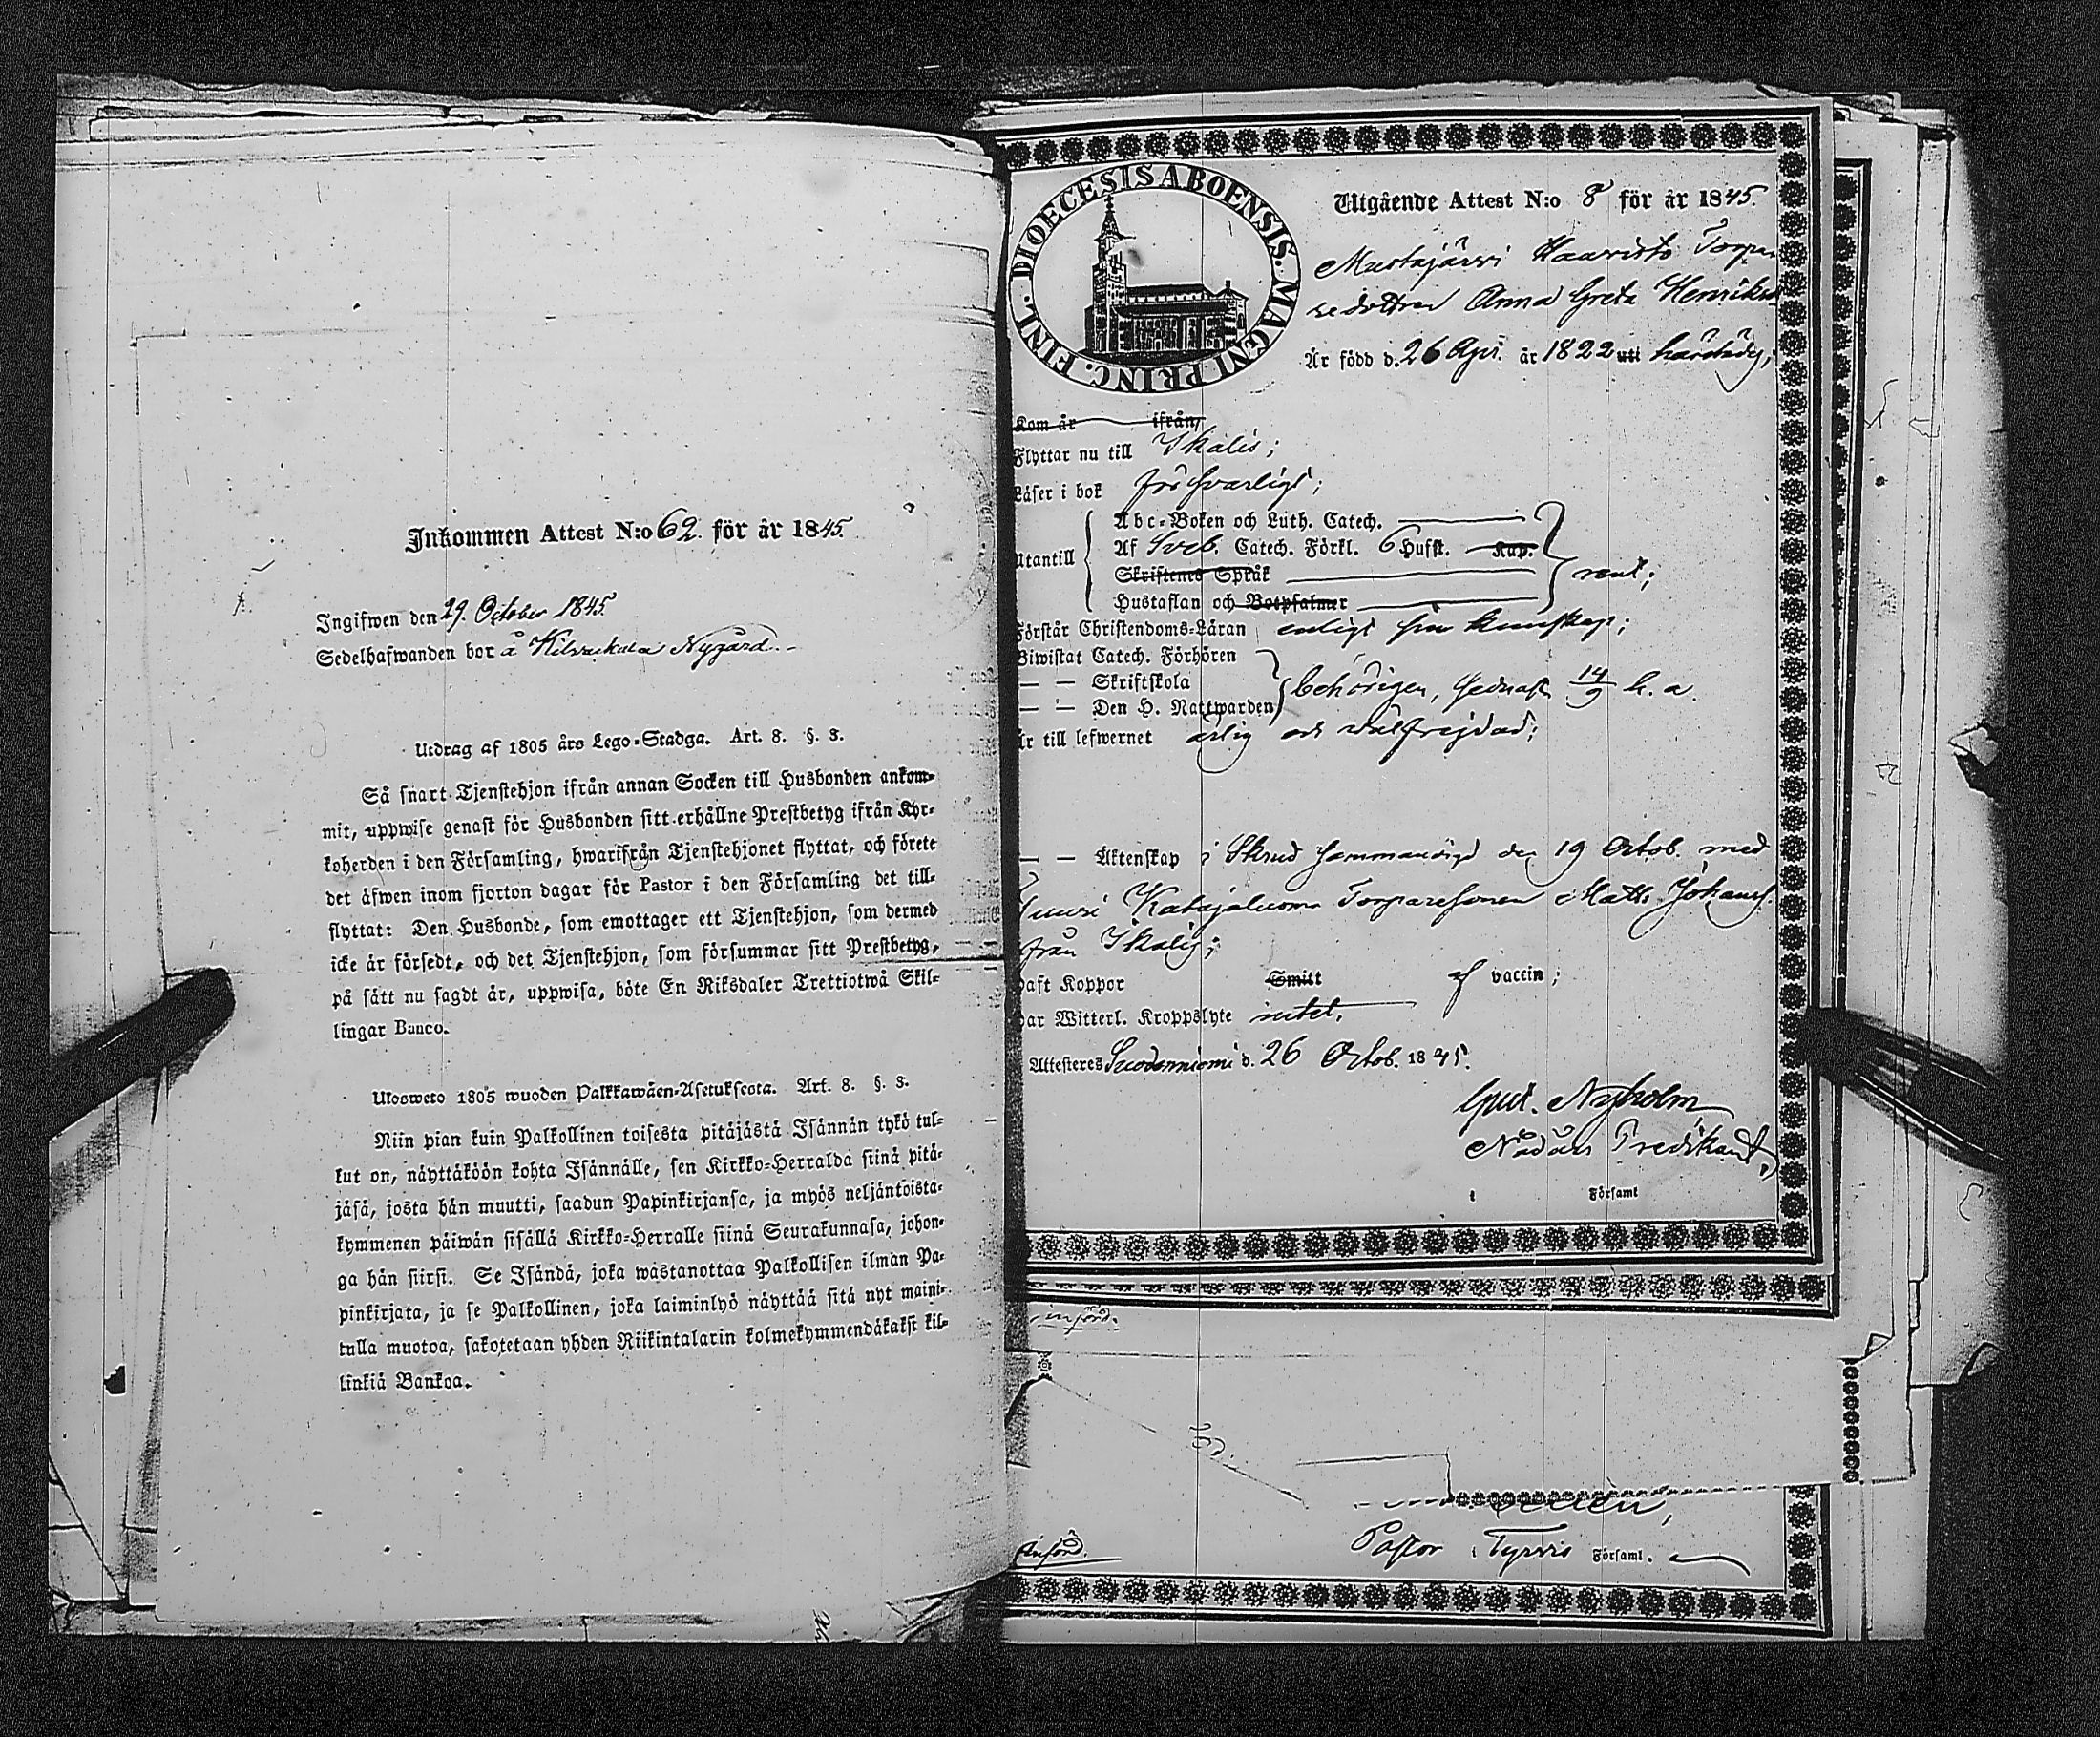 Inkommen Attest N:o 62. för år 1845.
Ingifwen den 29. October 1845.
Sedelhafwanden bor å Kilvakkala Nygård.
Utdrag af 1805 års Lego-Stadga. Art. 8. §. 3.
Så snart Tjenstehjon ifrån annan Socken till Husbonden ankom-
mit, uppwise genast för Husbonden sitt erhållne Prestbetyg ifrån Kyr-
koherden i den Församling, hwarifrån Tjenstehjonet flyttat, och förete
det äfwen inom fjorton dagar för Pastor i den Församling det till-
flyttat: Den Husbonde, som emottager ett Tjenstehjon, som dermed
icke är försedt, och det Tjenstehjon, som försummar sitt Prestbetyg,
på sätt nu sagdt är, uppwisa, böte En Riksdaler Trettiotwå Skil-
lingar Banco.
Ulosweto 1805 wuoden Palkkawäen-Asetuksesta. Art. 8. §. 3.
Niin pian kuin Palkollinen toisesta pitäjästä Isännän tykö tul-
lut on, näyttäköön kohta Isännälle, sen Kirkko-Herralda siinä pitä-
jäsä, josta hän muutti, saadun Papinkirjansa, ja myös neljäntoista-
kymmenen päiwän sisällä Kirkko-Herralle siinä Seurakunnasa, johon-
ga hän siirsi. Se Isändä, joka wastanottaa Palkollisen ilman Pa-
pinkirjata, ja se Palkollinen, joka laiminlyö näyttää sitä nyt maini-
tulla muotoa, sakotetaan yhden Riikintalarin kolmekymmendäkaksi kil-
linkiä Bankoa.
DIOECESIS ABOENSIS. MAGNI PRINC. FINL.
Utgående Attest N:o 8 för år 1845.
Mustajärvi Haavisto Torpa-
re dottren Anna Greta Henriks
Är född d. 26 Apr. år 1822 uti härstädes;
Kom år ifrån
Flyttar nu till Ikalis;
Läser i bok försvarligt;
Utantill
Abc-Boken och Luth. Catech.
Af Sveb. Catech. Förkl. 6 Hufst. Kap.
Skriftenes Språk
rent;
Hustaflan och Botpsalmer
Förstår Christendoms-Läran enligt sin kunskap;
Biwistat Catech. Förhören
— — Skriftskola
behörigen, sednast 14/9 h. a.
— — Den H. Nattwarden
Är till lefwernet ärlig och välfrejdad;
— — Äktenskap i Skrud sammanvigd den 19 Octob. med
Katajaluoma Torparesonen Matts Johans.
från Ikalis;
Haft Koppor Smitt af vaccin;
Har Witterl. Kroppslyte intet.
Attesteras Suodenniemi d. 26 Octob. 1845.
Gust. Nyholm
Nådårs Predikant,
i Församl
införd.
införd.
Pastor i Tyrvis Församl.